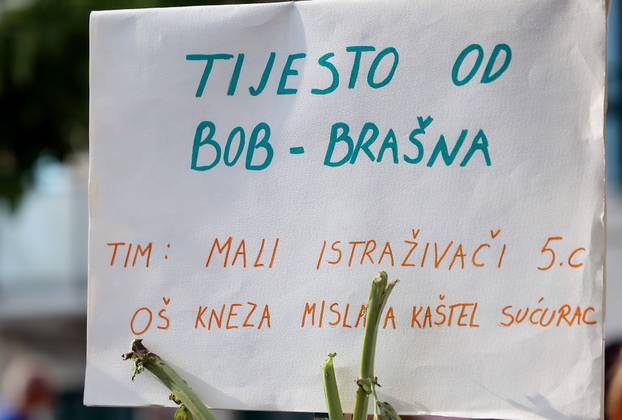 TIJESTO OD
BOB - BRAŠNA
TIM: MALI ISTRAŽIVAČI 5.C
OŠ KNEZA MISLAVA KAŠTEL SUĆURAC